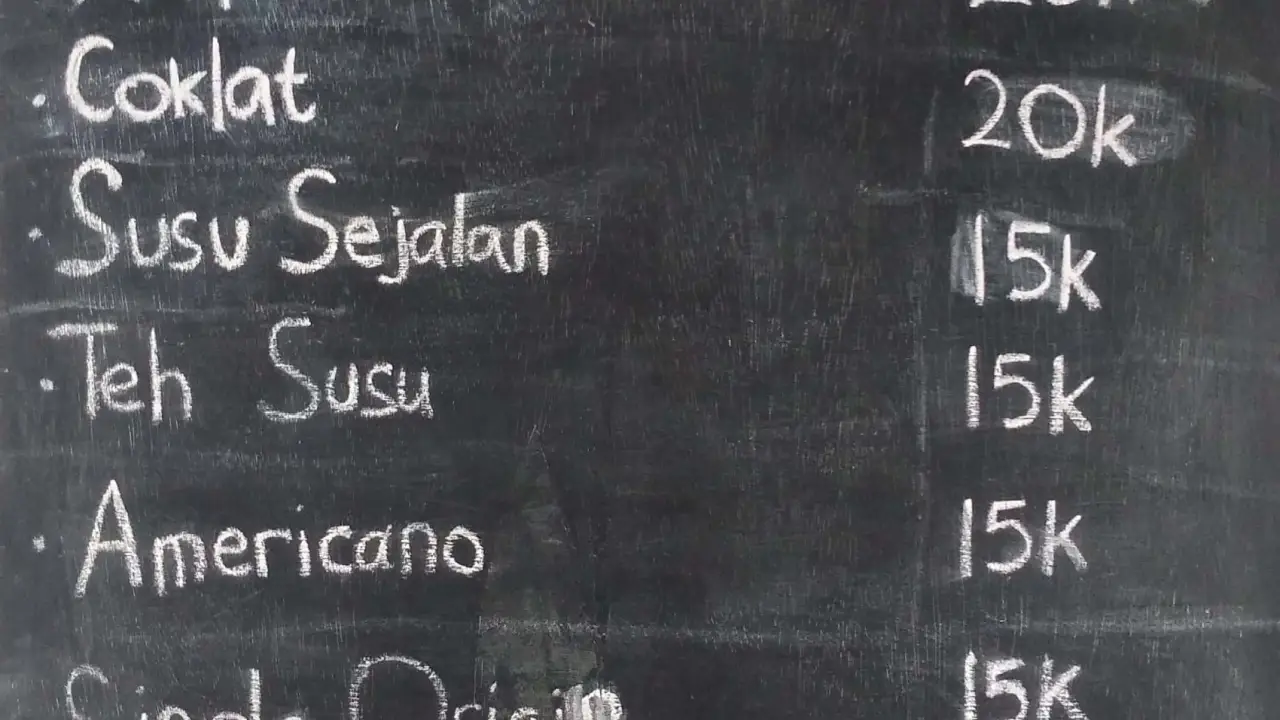 · Coklat 20k
· Susu Sejalan 15k
· Teh Susu 15k
· Americano 15k
Single Origin 15k